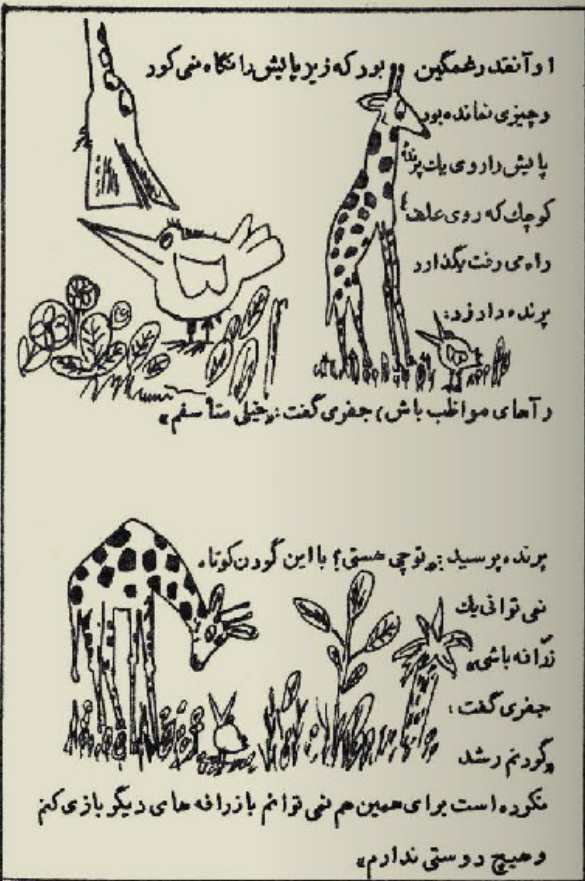 او آنقدر غمگین بود که زیر پایش را نگاه نمی کرد
و چیزی نمانده بود
پایش را روی یك پرندهٔ
کوچك که روی علف ها
راه می رفت بگذارد
پرنده داد زد:
«آهای مواظب باش» جفری گفت: «خیلی متأسفم»
پرنده پرسید: «تو چی هستی؟ با این گردن کوتاه
نمی توانی یك
زرّافه باشی»
جفری گفت:
«گردنم رشد
نکرده است برای همین هم نمی توانم با زرافه های دیگر بازی کنم
و هیچ دوستی ندارم»